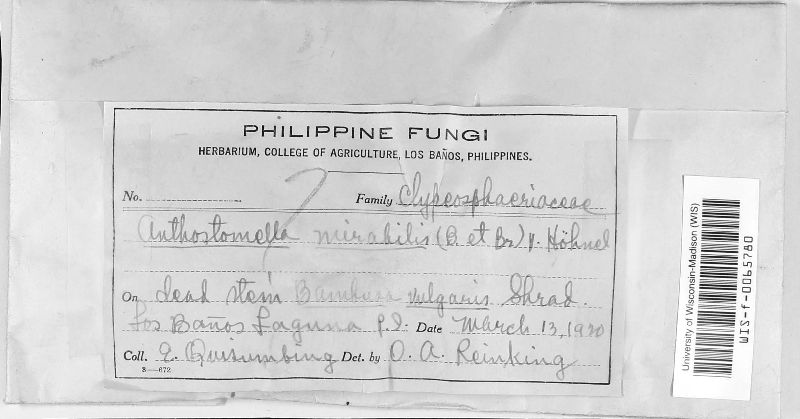 PHILIPPINE FUNGI
HERBARIUM, COLLEGE OF AGRICULTURE, LOS BAÑOS, PHILIPPINES.
No. Family Clypeosphaeriaceae
Anthostomella mirabilis (B. et Br.) v. Höhnel
On dead stem Bambusa vulgaris Shrad.
Los Baños Laguna P.I. Date March 13, 1920
Coll. E. Quisumbing Det. by O. A. Reinking
8—672
University of Wisconsin-Madison (WIS)
WIS-f-0065780